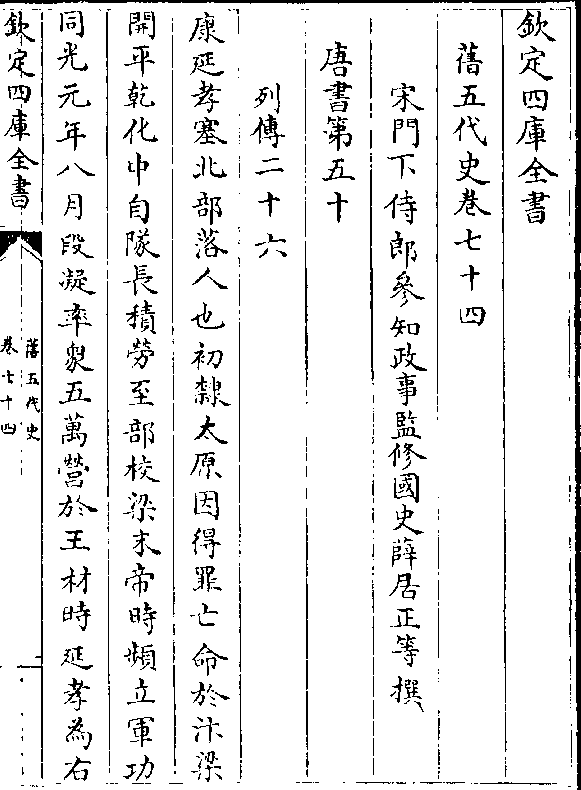 欽定四庫全書
舊五代史卷七十四
宋門下侍郎參知政事監修國史薛居正等撰
唐書第五十
列傳二十六
康延孝塞北部落人也初隸太原因得罪亡命於汴梁
開平乾化中自隊長積勞至部校梁末帝時頻立軍功
同光元年八月段凝率衆五萬營於王村時延孝為右
欽定四庫全書
舊五代史
卷七十四